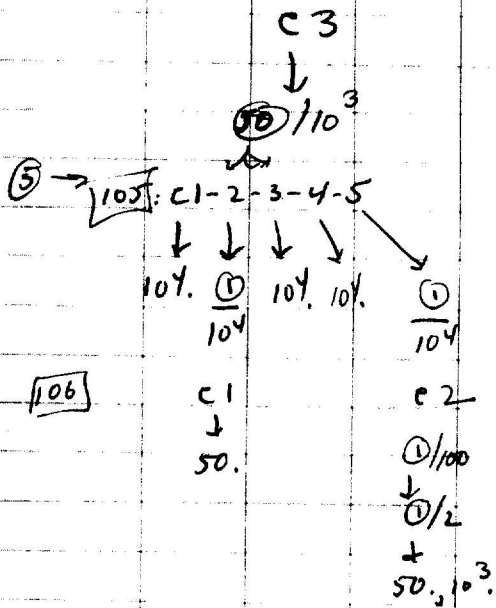 c 3
↓
50 /10³
⑤ → 105: c1-2-3-4-5
↓ ↓ ↓ ↘ ↘
10⁴. ①/10⁴ 10⁴. 10⁴. ①/10⁴
106 c1 c2
↓ ①/100
50. ↓
①/2
↓
50., 10³.